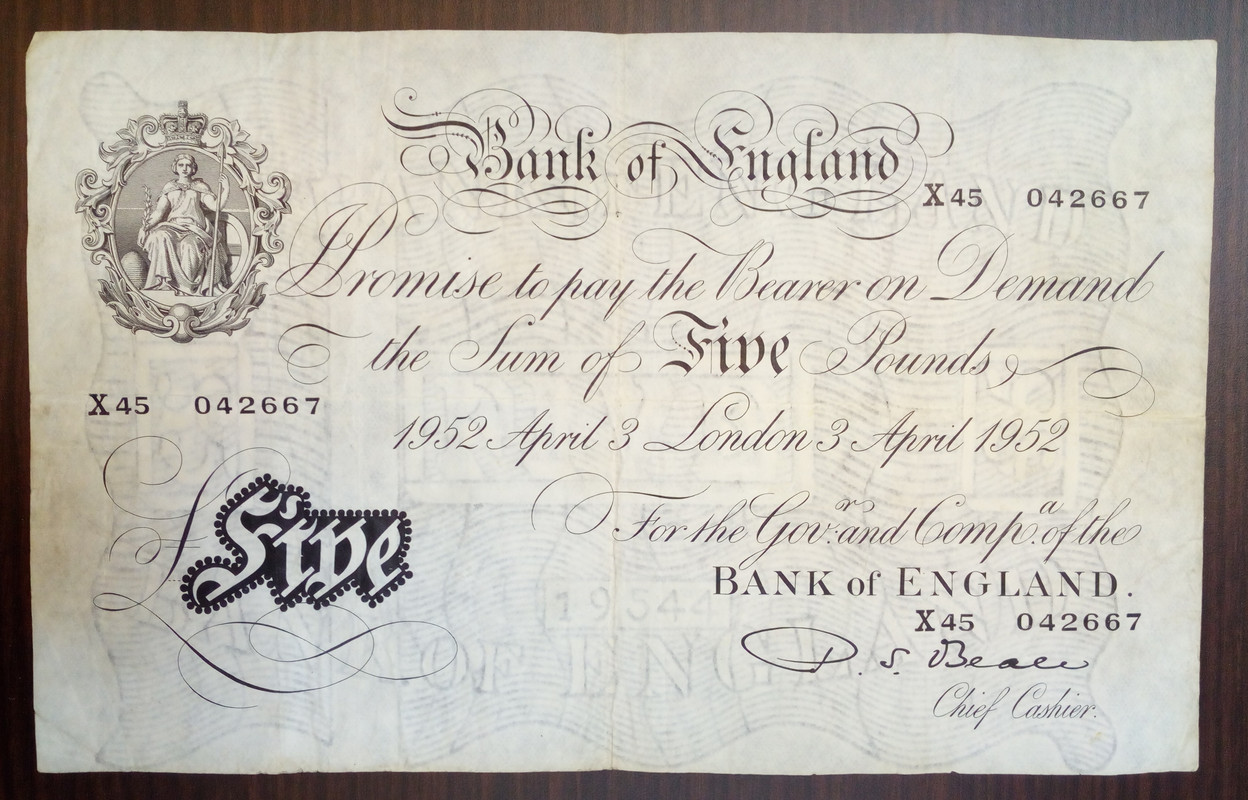 Bank of England
X45 042667
I Promise to pay the Bearer on Demand
the Sum of Five Pounds
X45 042667
1952 April 3 London 3 April 1952
£Five
For the Govr. and Compa. of the
BANK of ENGLAND.
X45 042667
P. S. Beale
Chief Cashier.